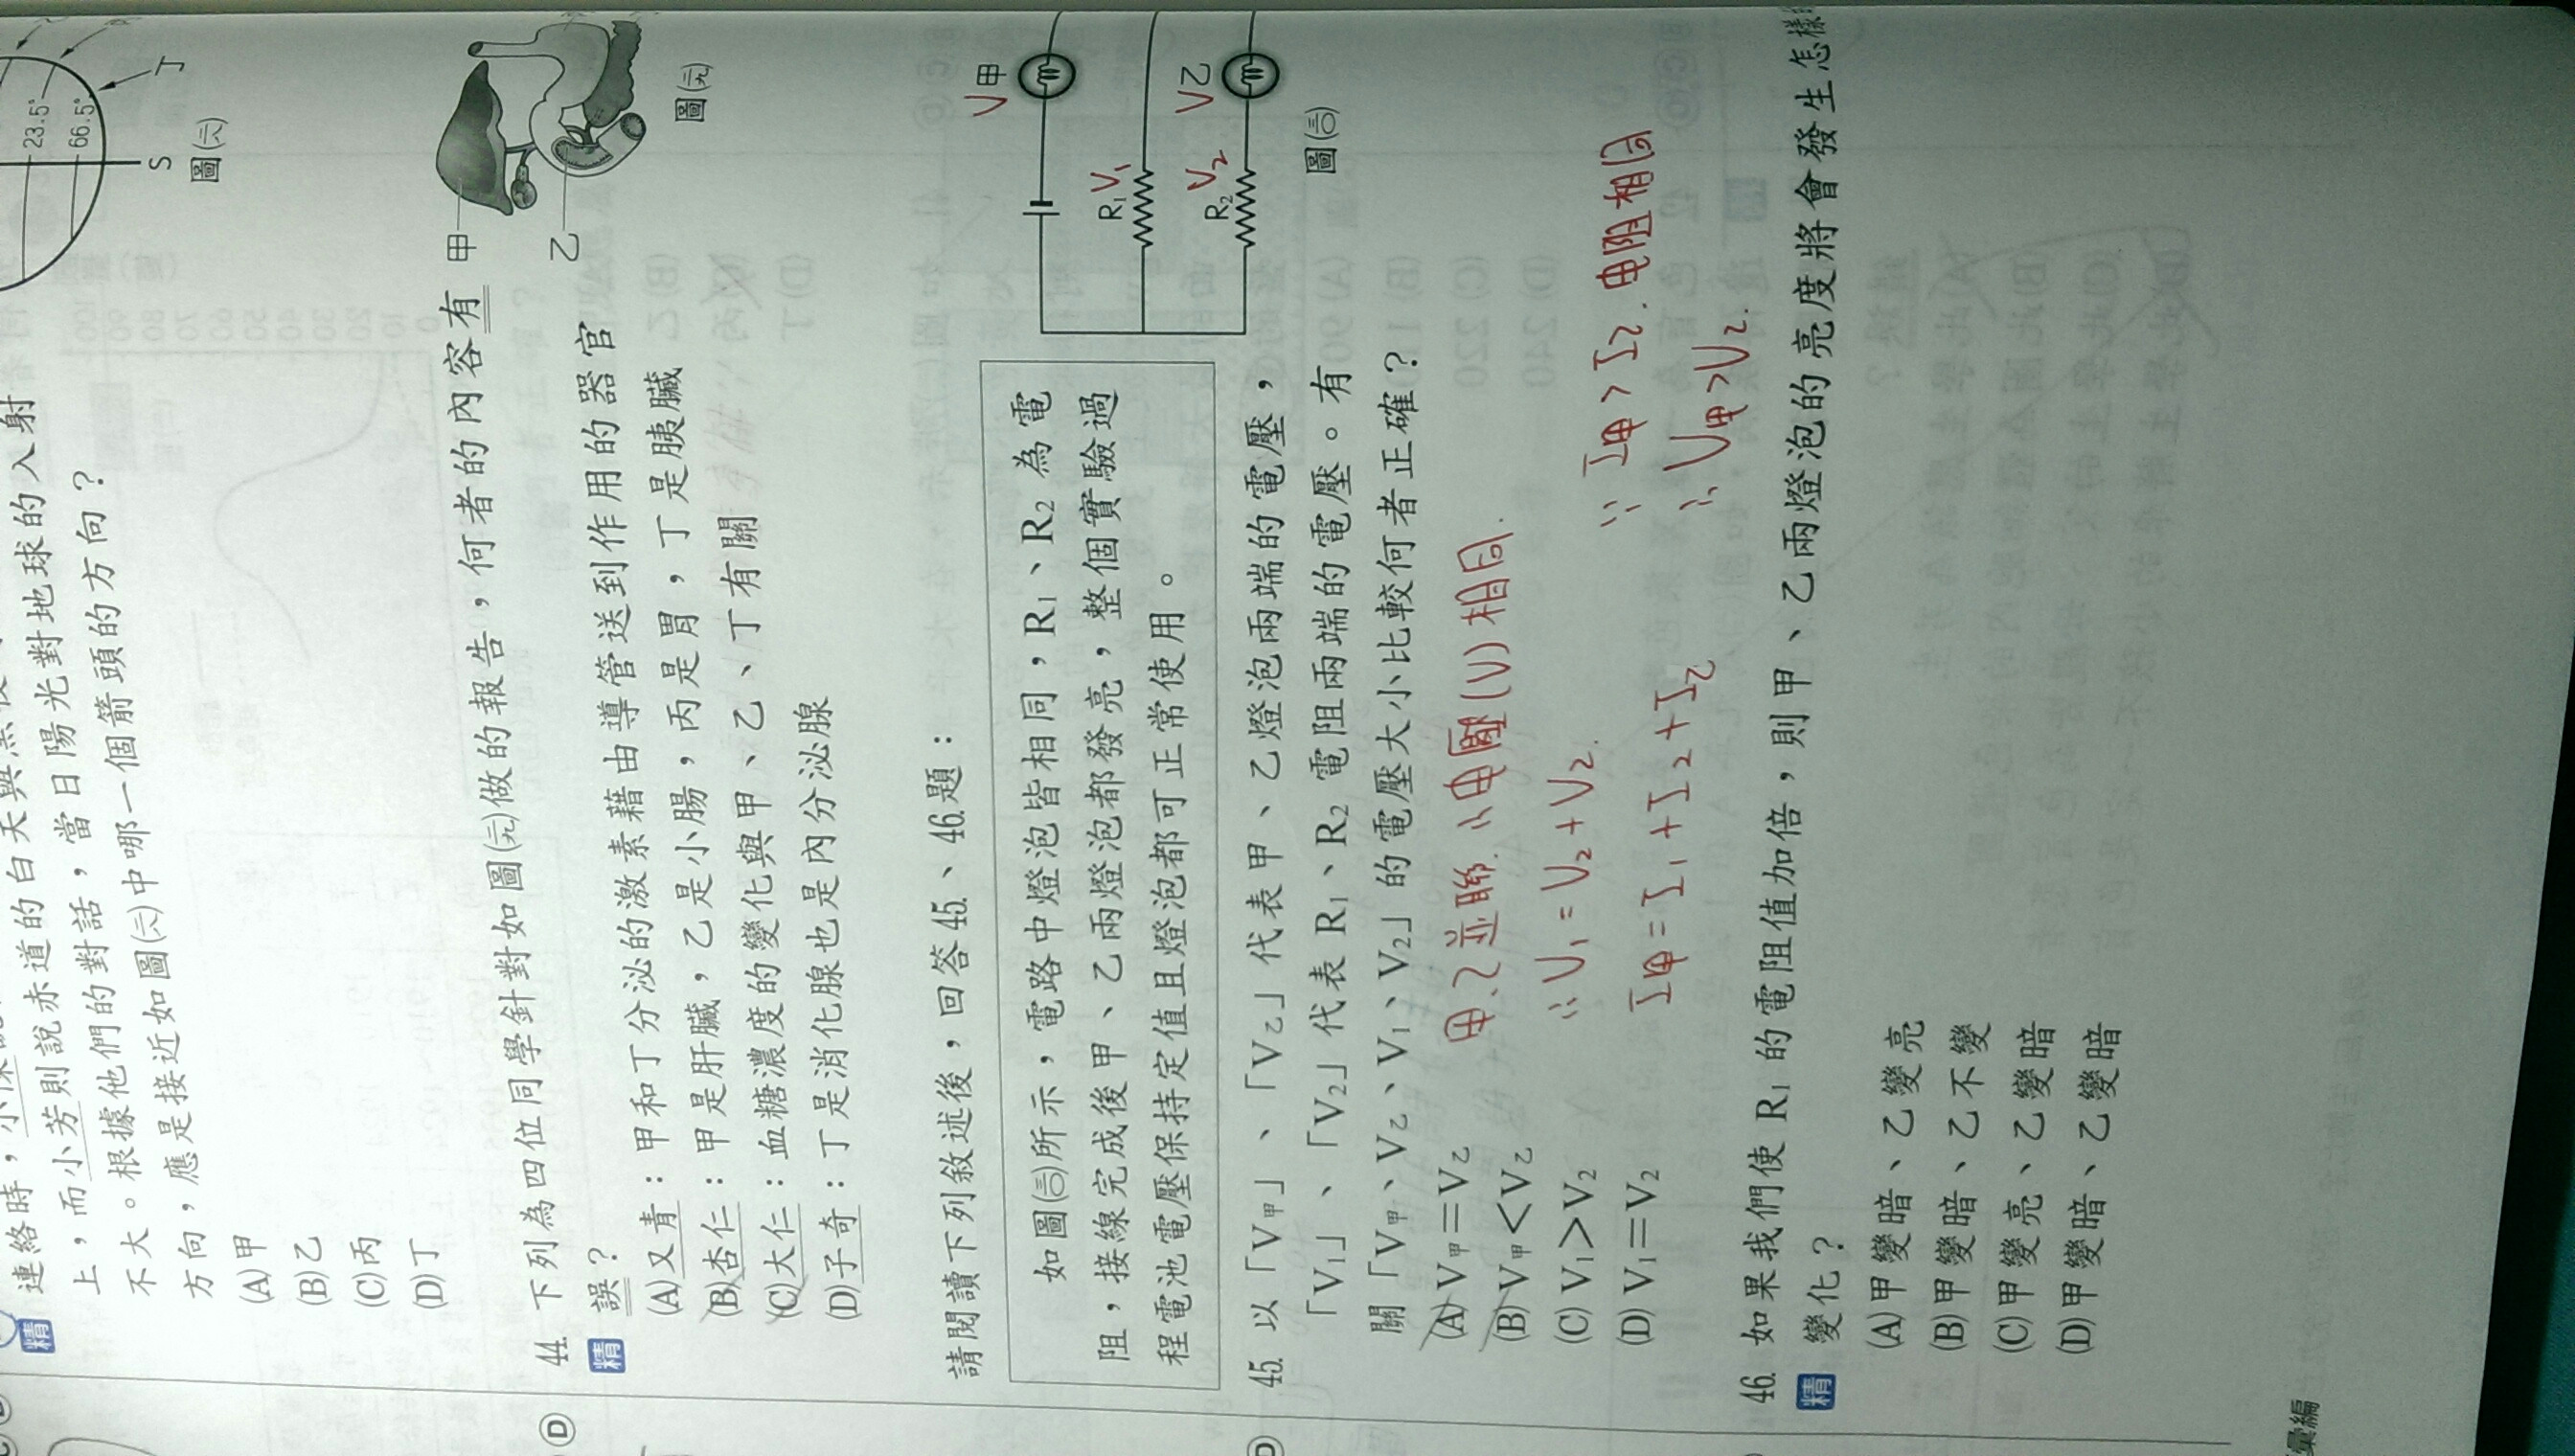 連絡時，
上，而小芳則說赤道的白天與黑夜
不大。根據他們的對話，當日陽光對地球的入射
方向，應是接近如圖(六)中哪一個箭頭的方向？
(A)甲
(B)乙
(C)丙
(D)丁
23.5°
66.5°
丁
S
圖(六)
精
44. 下列為四位同學針對如圖(元)做的報告，何者的內容有
誤？
(A)又青：甲和丁分泌的激素藉由導管送到作用的器官
(B)杏仁：甲是肝臟，乙是小腸，丙是胃，丁是胰臟
(C)大仁：血糖濃度的變化與甲、乙、丁有關
(D)子奇：丁是消化腺也是內分泌腺
甲
乙
圖(元)
精
D
請閱讀下列敘述後，回答 45.、46.題：
如圖(三〇)所示，電路中燈泡皆相同，R₁、R₂ 為電
阻，接線完成後甲、乙兩燈泡都發亮，整個實驗過
程電池電壓保持定值且燈泡都可正常使用。
V甲
R₁ V₁
V乙
R₂ V₂
圖(三〇)
45. 以「V甲」、「V乙」代表甲、乙燈泡兩端的電壓，
「V₁」、「V₂」代表 R₁、R₂ 電阻兩端的電壓。有
關「V甲、V乙、V₁、V₂」的電壓大小比較何者正確？
(A) V甲＝V乙
(B) V甲＜V乙
(C) V₁＞V₂
(D) V₁＝V₂
並聯 ∴電壓(V)相同.
∴V₁=V₂+V乙.
I甲=I₁+I₂+I乙
∵I甲>I₂.電阻相同
∴V甲>V₂.
46. 如果我們使 R₁ 的電阻值加倍，則甲、乙兩燈泡的亮度將會發生怎樣
變化？
(A)甲變暗、乙變亮
(B)甲變暗、乙不變
(C)甲變亮、乙變暗
(D)甲變暗、乙變暗
精
彙編